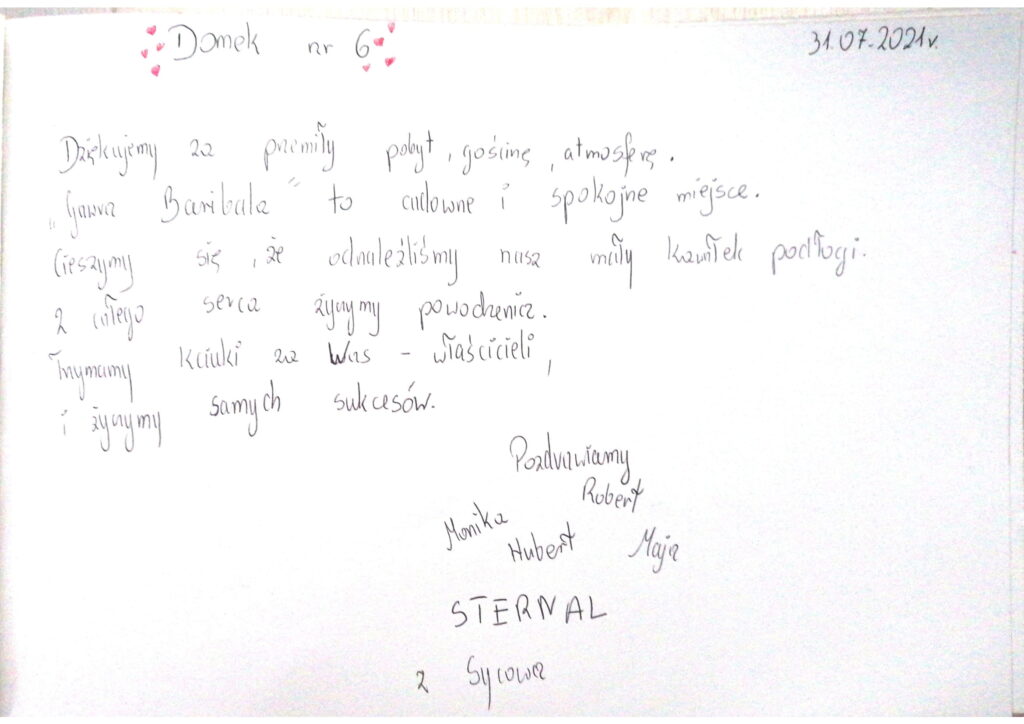 Domek nr 6
31.07.2021r.
Dziękujemy za przemiły pobyt, gościnę, atmosferę.
„Gawra Baribala" to cudowne i spokojne miejsce.
Cieszymy się, że odnaleźliśmy nasz mały kawałek podłogi.
Z całego serca życzymy powodzenia.
Trzymamy kciuki za Was - właścicieli,
i życzymy samych sukcesów.
Pozdrawiamy
Robert
Monika
Hubert Maja
STERNAL
z Sycowa